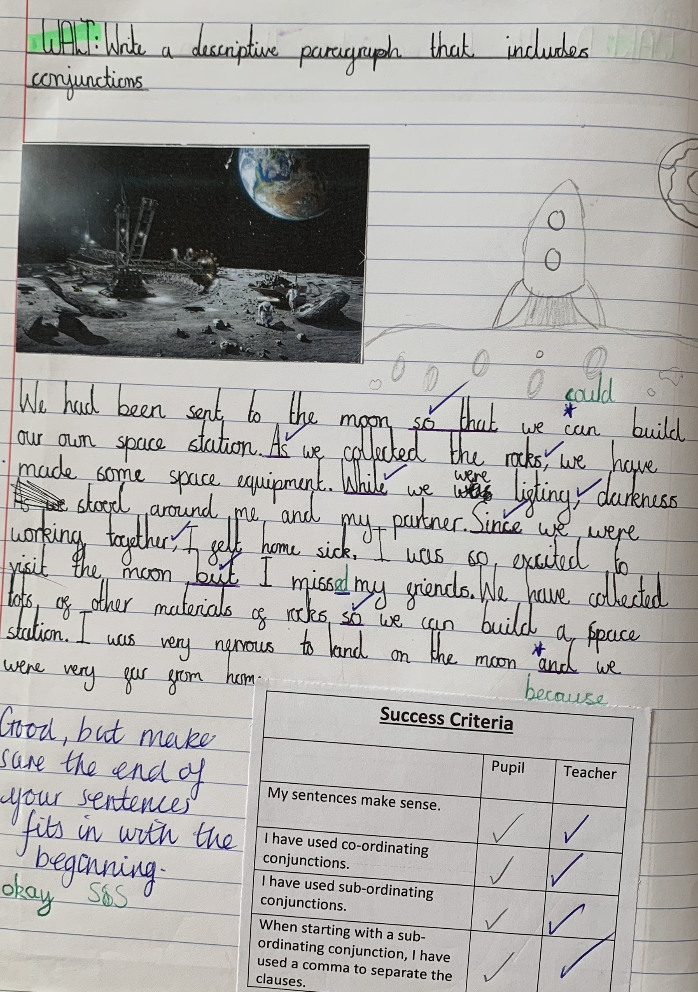 WALT: Write a descriptive paragraph that includes
conjunctions
could
We had been sent to the moon so that we *can build
our own space station. As we collected the rocks, we have
made some space equipment. While we were ligting, darkness
stood around me and my partner. Since we were
working together, I felt home sick. I was so excited to
visit the moon but I missed my friends. We have collected
lots of other materials of rocks so we can build a space
station. I was very nervous to land on the moon *and we
were very far from hom.
because
Good, but make
sure the end of
your sentences
fits in with the
beginning.
okay
Success Criteria
Pupil Teacher
My sentences make sense. ✓ ✓
I have used co-ordinating
conjunctions. ✓ ✓
I have used sub-ordinating
conjunctions. ✓ ✓
When starting with a sub-
ordinating conjunction, I have
used a comma to separate the
clauses. ✓ ✓